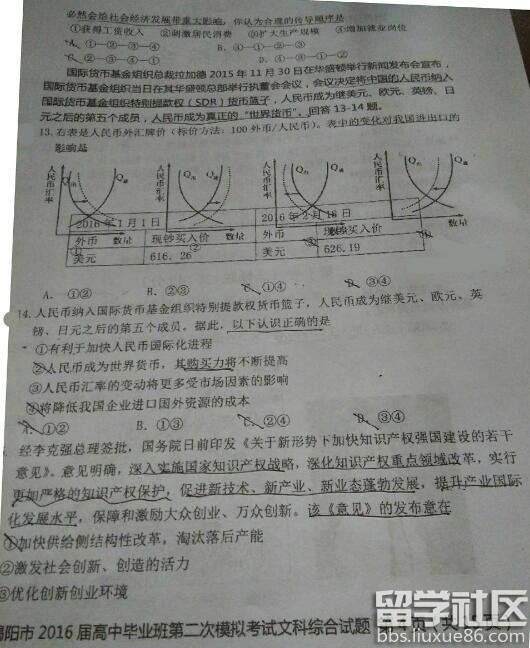 必然会给社会经济发展带重大影响，你认为合理的传导顺序是
①获得工资收入 ②刺激居民消费 ③扩大生产规模 ④增加就业岗位
A. ①—②—③—④ B. ④—①—②—③
D. ④—③—①—②
国际货币基金组织总裁拉加德 2015 年 11 月 30 日在华盛顿举行新闻发布会宣布，
国际货币基金组织当日在其华盛顿总部举行执董会会议，会议决定将中国的人民币纳入
国际货币基金组织特别提款权（SDR）货币篮子，人民币成为继美元、欧元、英镑、日
元之后的第五个成员，人民币成为真正的“世界货币”。回答 13-14 题。
13. 右表是人民币外汇牌价（标价方法：100 外币/人民币）。表中的变化对我国进出口的
影响是
人民币汇率 人民币汇率 人民币汇率 人民币汇率
2016 年 1 月 1 日
外币 数量 现钞买入价 数量 外币 数量 现钞买入价 数量
美元 616. 26 美元 626.19
A. ①② B. ②③ C. ①④ D. ③④
14. 人民币纳入国际货币基金组织特别提款权货币篮子，人民币成为继美元、欧元、英
镑、日元之后的第五个成员。据此，以下认识正确的是
①有利于加快人民币国际化进程
②人民币成为世界货币，其购买力将不断提高
③人民币汇率的变动将更多受市场因素的影响
④将降低我国企业进口国外资源的成本
A. ①② B. ①③ C. ②④ D. ③④
经李克强总理签批，国务院日前印发《关于新形势下加快知识产权强国建设的若干
意见》。意见明确，深入实施国家知识产权战略，深化知识产权重点领域改革，实行
更加严格的知识产权保护，促进新技术、新产业、新业态蓬勃发展，提升产业国际
化发展水平，保障和激励大众创业、万众创新。该《意见》的发布意在
①加快供给侧结构性改革，淘汰落后产能
②激发社会创新、创造的活力
③优化创新创业环境
揭阳市 2016 届高中毕业班第二次模拟考试文科综合试题
留学社区
bbs.liuxue86.com